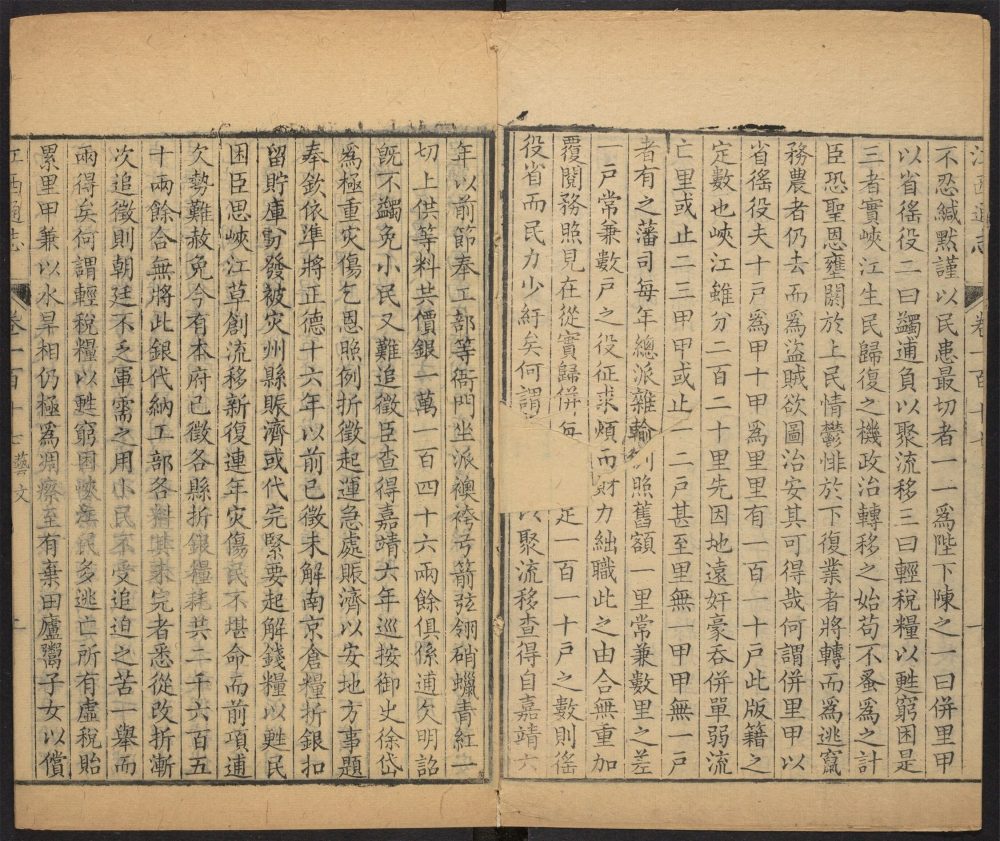 江西通志
卷一百十七
一
不忍緘默謹以民患最切者一一為陛下陳之一曰併里甲
以省徭役二曰蠲逋負以聚流移三曰輕稅糧以甦窮困是
三者實峽江生民歸復之機政治轉移之始苟不蚤為之計
臣恐聖恩壅閼於上民情鬱悱於下復業者將轉而為逃竄
務農者仍去而為盜賊欲圖治安其可得哉何謂併里甲以
省徭役夫十戶為甲十甲為里里有一百一十戶此版籍之
定數也峽江雖分二百二十里先因地遠奸豪吞併單弱流
亡里或止二三甲甲或止一二戶甚至里無一甲甲無一戶
者有之藩司每年總派雜輸則照舊額一里常兼數里之差
一戶常兼數戶之役征求煩而財力絀職此之由合無重加
覆閱務照見在從實歸併每 足一百一十戶之數則徭
役省而民力少紓矣何謂 以聚流移查得自嘉靖六
年以前節奉工部等衙門坐派襖袴弓箭弦翎硝蠟青紅一
切上供等料共價銀一萬一百四十六兩餘俱係逋欠明詔
既不蠲免小民又難追徵臣查得嘉靖六年巡按御史徐岱
為極重灾傷乞恩照例折徵起運急處賑濟以安地方事題
奉欽依準將正德十六年以前已徵未解南京倉糧折銀扣
留貯庫分發被灾州縣賑濟或代完緊要起解錢糧以甦民
困臣思峽江草創流移新復連年灾傷民不堪命而前項逋
欠勢難赦免今有本府已徵各縣折銀糧耗共二千六百五
十兩餘合無將此銀代納工部各料其未完者悉從改折漸
次追徵則朝廷不乏軍需之用小民不受追迫之苦一舉而
兩得矣何謂輕稅糧以甦窮困峽 民多逃亡所有虛稅貽
累里甲兼以水旱相仍極為凋瘵至有棄田廬鬻子女以償
江西通志
卷一百十七
藝文
一